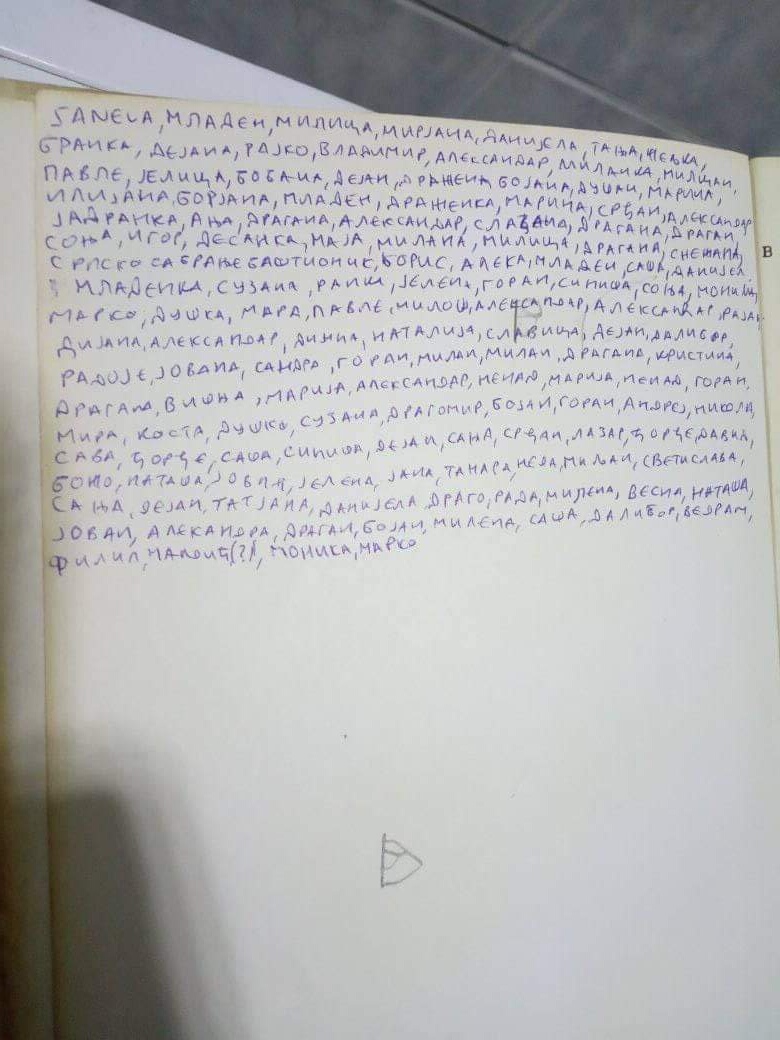 SANELA, МЛАДЕН, МИЛИЦА, МИРЈАНА, ДАНИЈЕЛА, ТАЊА, ЖЕЉКА,
БРАНКА, ДЕЈАНА, РАЈКО, ВЛАДИМИР, АЛЕКСАНДАР, МИЛАНКА, МИЛИЦА,
ПАВЛЕ, ЈЕЛИЦА, БОБАНА, ДЕЈАН, ДРАЖЕНА, БОЈАНА, ДУШАН, МАРИНА,
ИЛИЈАНА, БОРЈАНА, МЛАДЕН, ДРАЖЕНКА, МАРИНА, СРЂАН, АЛЕКСАНДАР
ЈАДРАНКА, АЊА, ДРАГАНА, АЛЕКСАНДАР, СЛАЂАНА, ДРАГАНА, ДРАГАН,
СОЊА, ИГОР, ДЕСАНКА, МАЈА, МИЛАНА, МИЛИЦА, ДРАГАНА, СНЕЖАНА,
СРПСКО САБРАЊЕ БАШТИОНИК, БОРИС, АЛЕКА, МЛАДЕН, САША, ДАНИЈЕЛ
МЛАДЕНКА, СУЗАНА, ЈЕЛЕНА, ГОРАН, СИНИША, СОЊА,
МАРКО, ДУШКА, МАРА, ПАВЛЕ, МИЛОШ, АЛЕКСАНДАР, АЛЕКСАНДАР, РАЈАН
ДИЈАНА, АЛЕКСАНДАР, НАТАЛИЈА, СЛАВИЦА, ДЕЈАН, ДАЛИБОР,
РАДОЈЕ, ЈОВАНА, САНДРА, ГОРАН, МИЛАН, МИЛАН, ДРАГАНА, КРИСТИНА,
ДРАГАНА, ВИШЊА, МАРИЈА, АЛЕКСАНДАР, НЕНАД, МАРИЈА, НЕНАД, ГОРАН,
МИРА, КОСТА, ДУШКО, СУЗАНА, ДРАГОМИР, БОЈАН, ГОРАН, АНДРЕЈ, НИКОЛА,
САВА, ЂОРЂЕ, САША, СИНИША, ДЕЈАН, САЊА, СРЂАН, ЛАЗАР, ЂОРЂЕ, ДАВИД,
БОЖО, НАТАША, ЈОВАНА, ЈЕЛЕНА, ЈАНА, ТАМАРА, НЕЂА, МИЉАН, СВЕТИСЛАВА,
САЊА, ДЕЈАН, ТАТЈАНА, ДАНИЈЕЛА, ДРАГО, РАДА, МИЛЕНА, ВЕСНА, НАТАША,
ЈОВАН, АЛЕКАНДРА, ДРАГАН, БОЈАН, МИЛЕНА, САША, ДАЛИБОР, ВЕДРАН,
ФИЛИП, МОНИКА, МАРКО
В